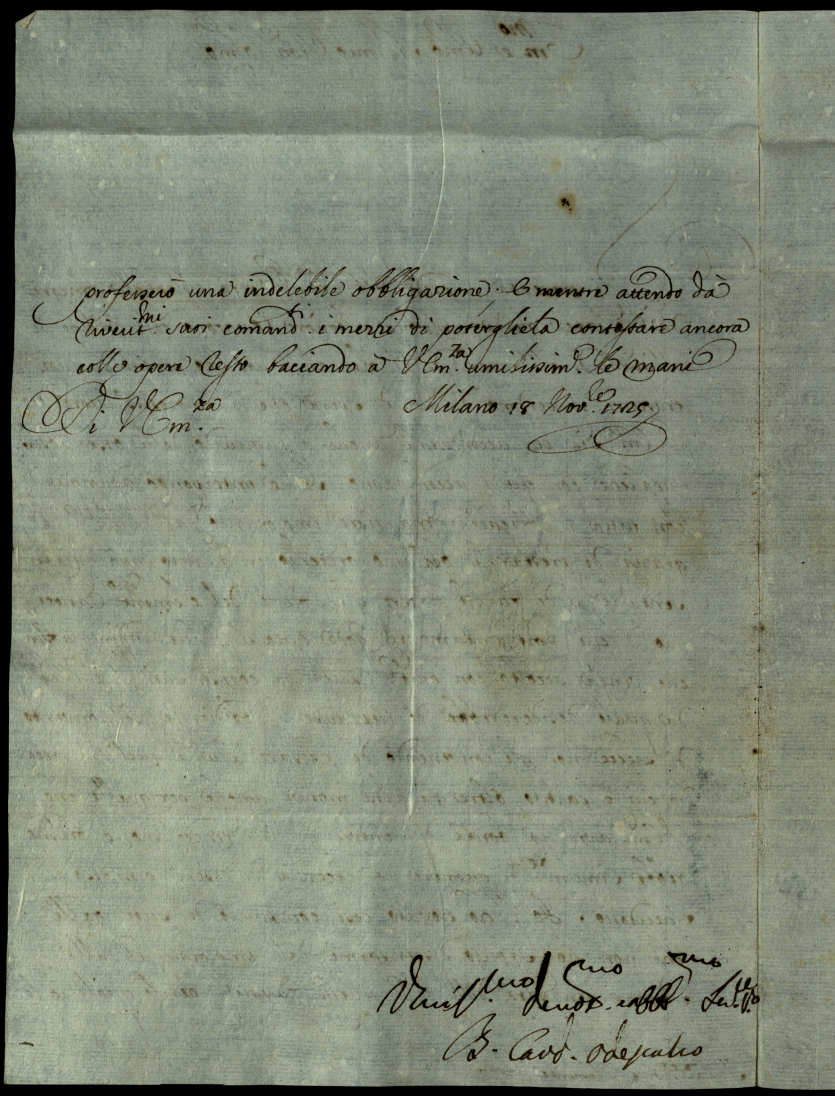 professerò una indelebile obbligazione. E mentre attendo dà
riverit.mi suoi comand.i i mezzi di potergliela contestare ancora
colle opere resto bacciando a V Em.za umilissim.e le mani
Di V Em.za Milano 18 Nov.re 1725
Umiliss.mo devot.mo obbl.mo Ser.re
B. Card. Odescalco